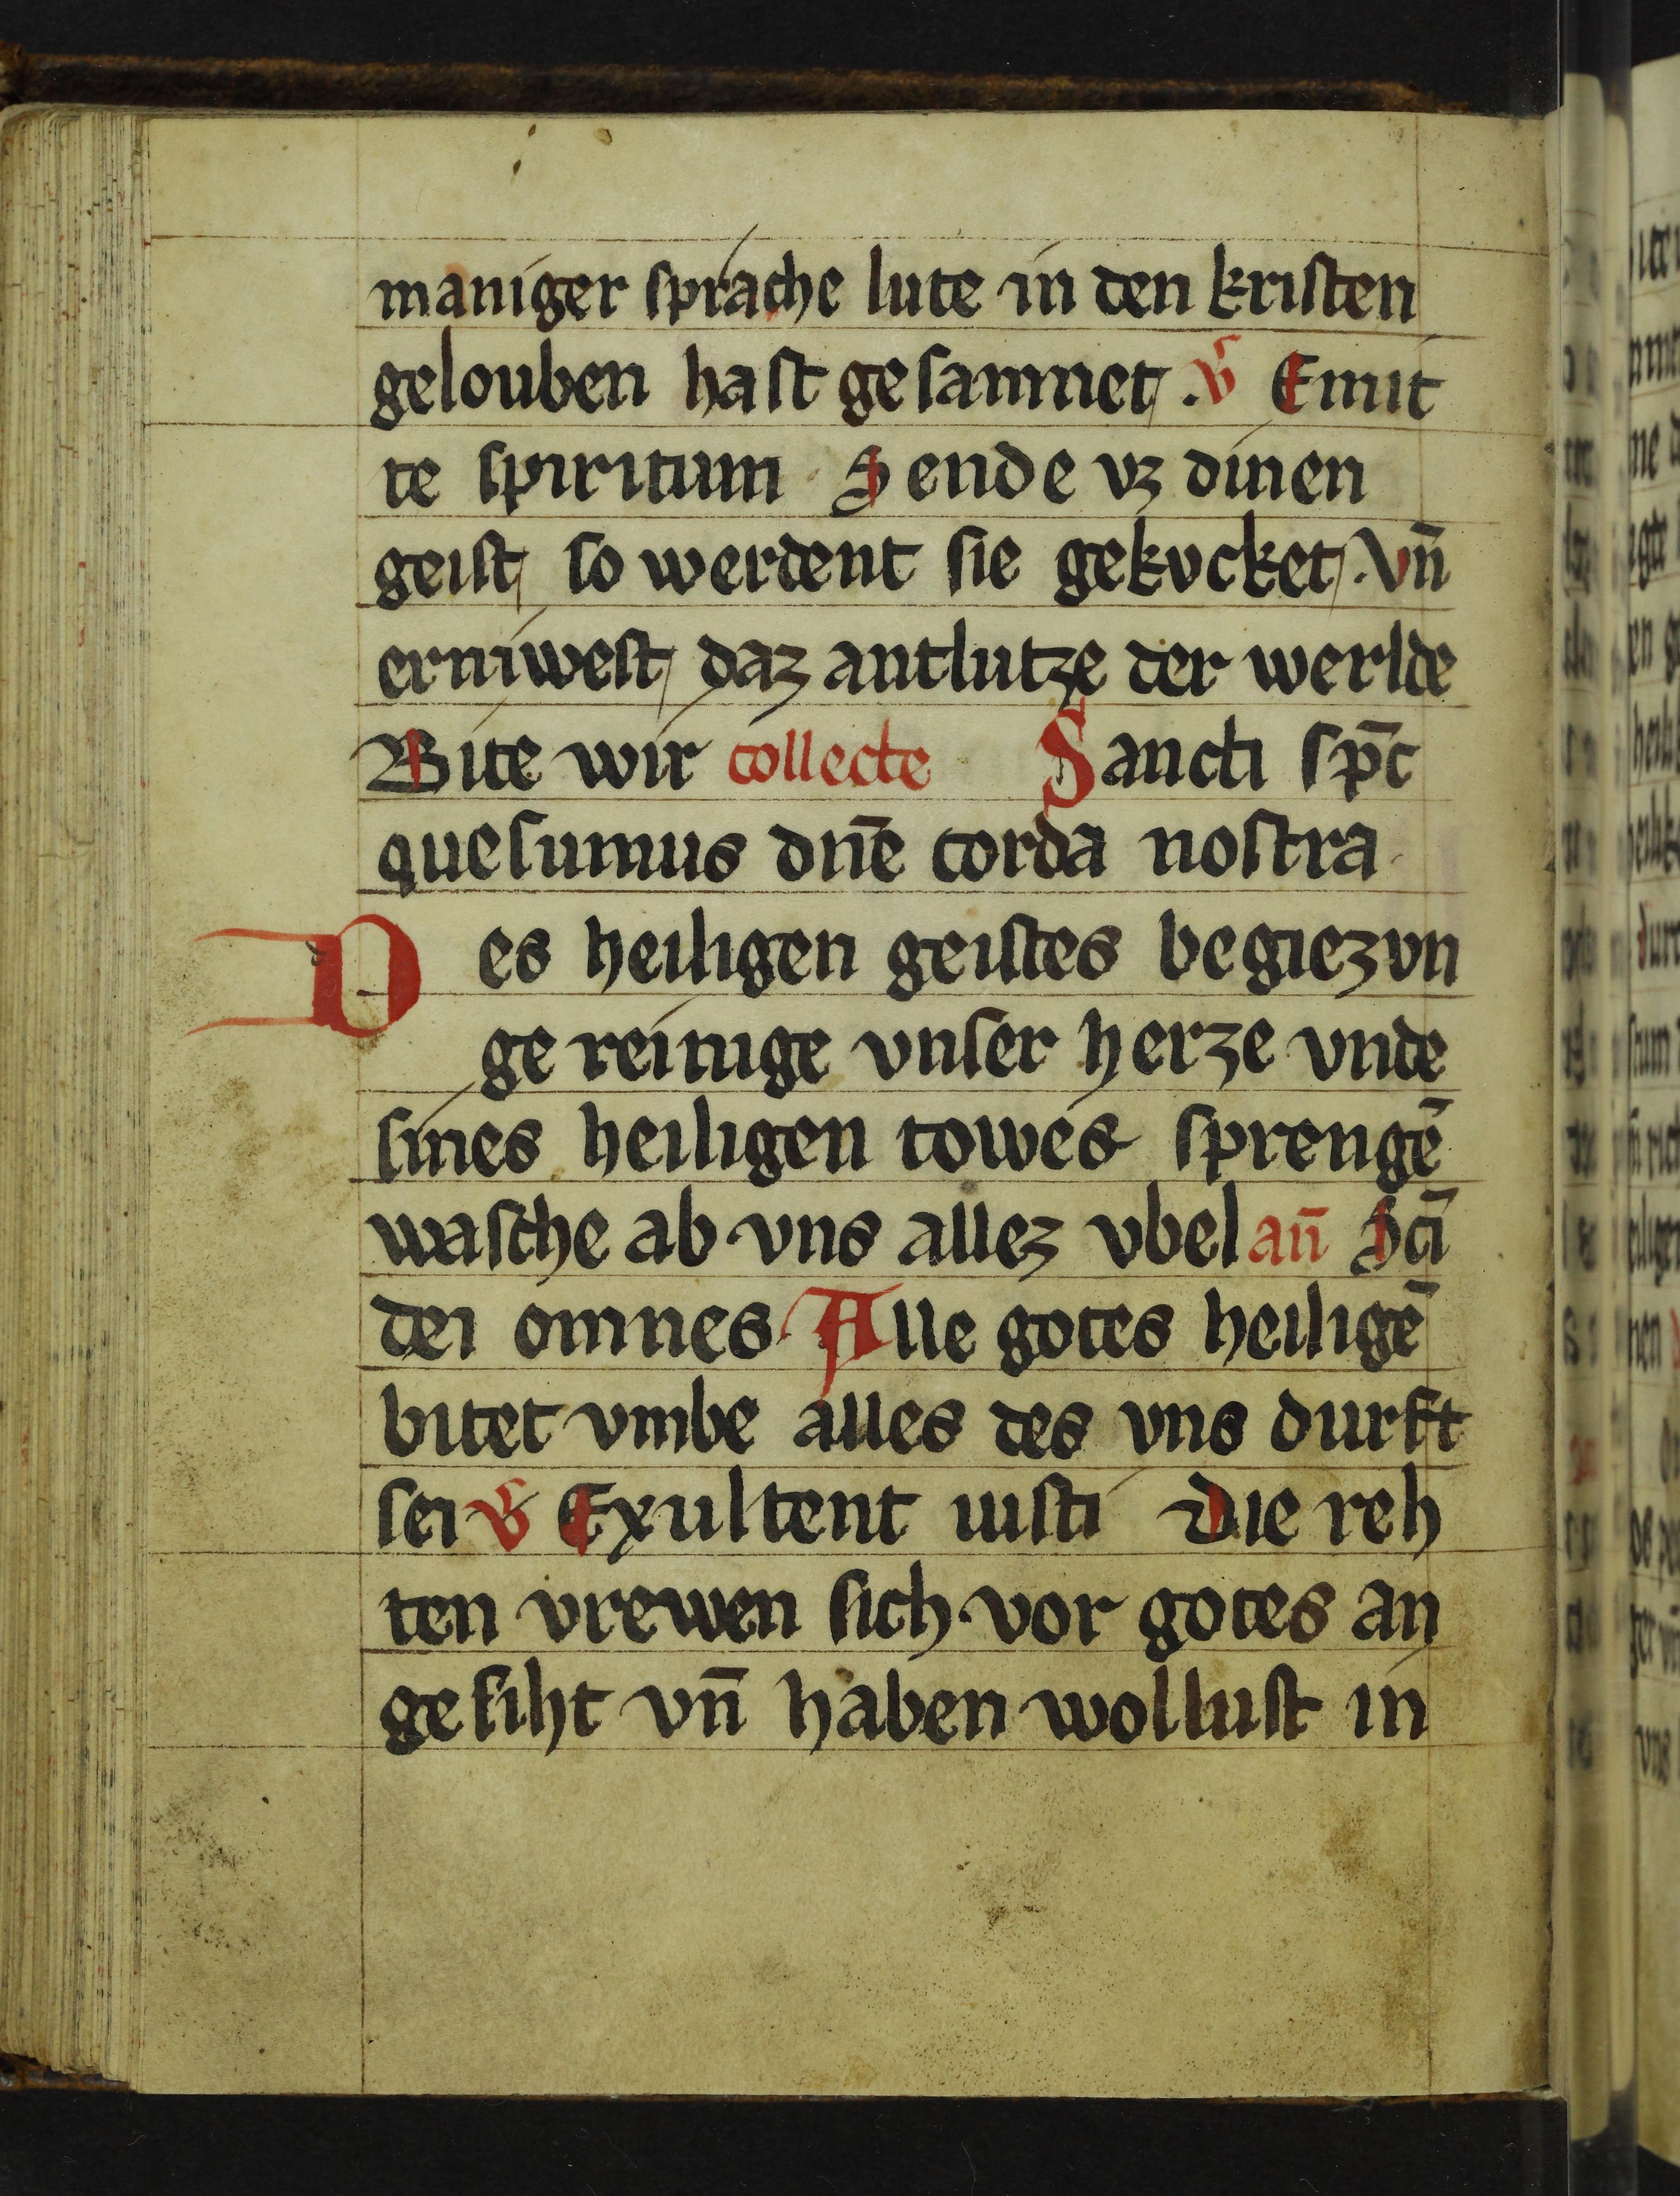 maniger sprache lute in den kristen
gelouben hast gesammet. v̄ Emit
te spiritum Sende vz dinen
geist so werdent sie gekvcket. vn̄
erniwest daz antlutze der werlde
Bite wir collecte Sancti sp̄c
quesumus dn̄e corda nostra
Des heiligen geistes begiezvn
ge reinige vnser herze vnde
sines heiligen towes sprengē
wasche ab vns allez vbel an̄ Sc̄i
dei omnes Alle gotes heiligē
bitet vmbe alles des vns durft
sei v̄ Exultent iusti Die reh
ten vrewen sich vor gotes an
gesiht vn̄ haben wollust in